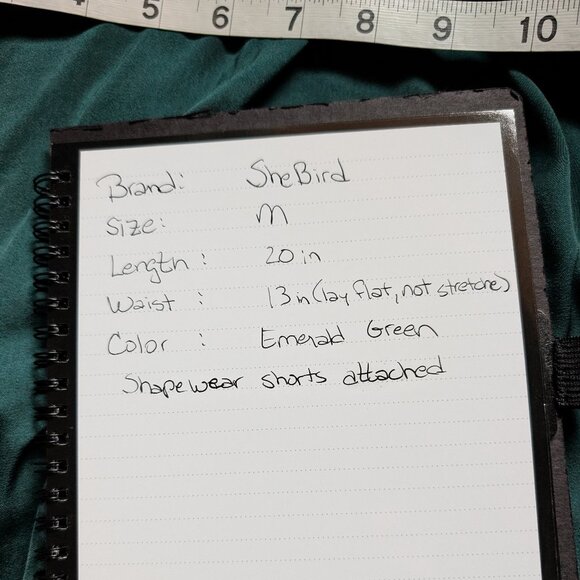 5 6 7 8 9 10
Brand: SheBird
Size: M
Length: 20 in
Waist: 13 in (lay flat, not stretche)
Color: Emerald Green
Shapewear shorts attached